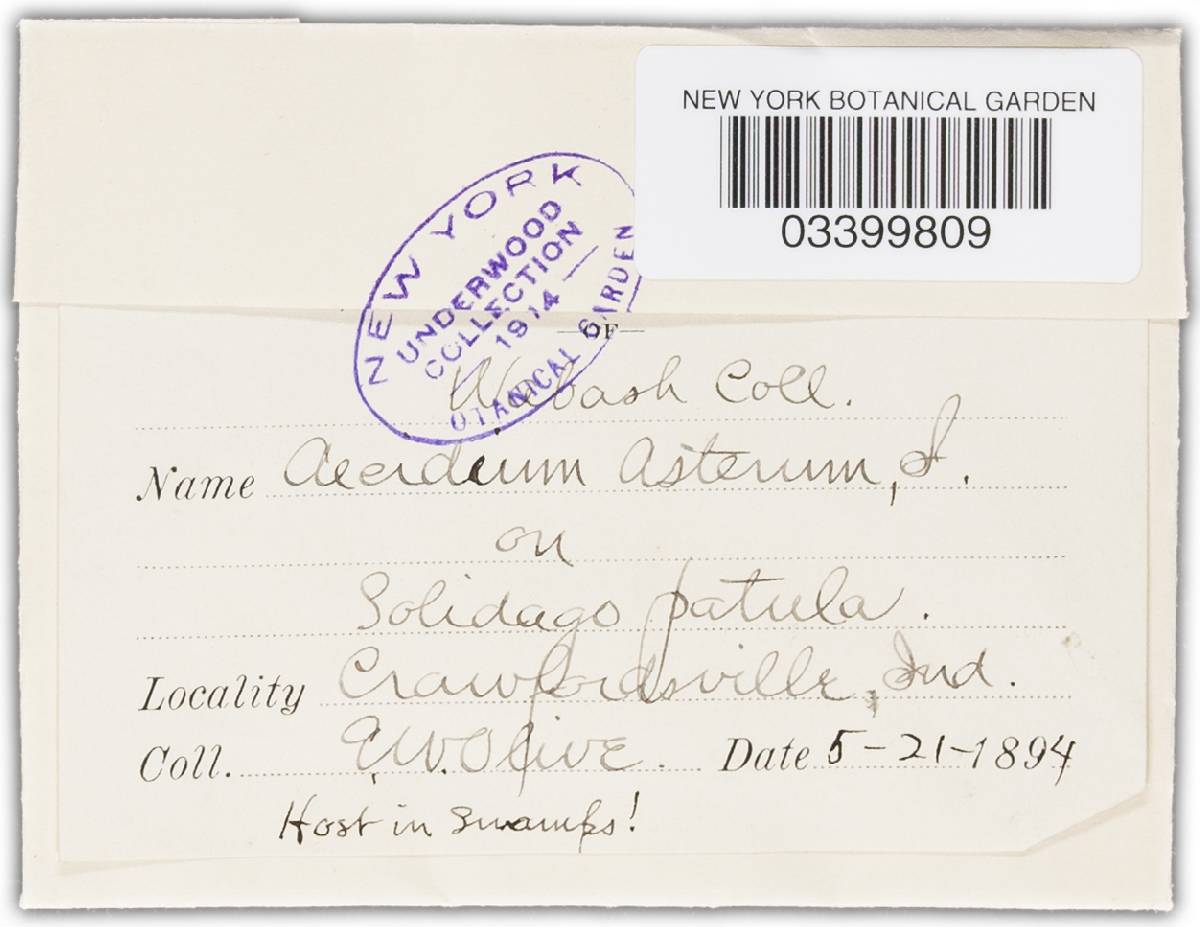 NEW YORK BOTANICAL GARDEN
03399809
NEW YORK
UNDERWOOD
COLLECTION
1914
OTANICAL GARDEN
—OF—
Wabash Coll.
Name Aecidium Asterum, S.
on
Solidago patula.
Locality Crawfordsville, Ind.
Coll. E.W. Olive. Date 5-21-1894
Host in swamps!